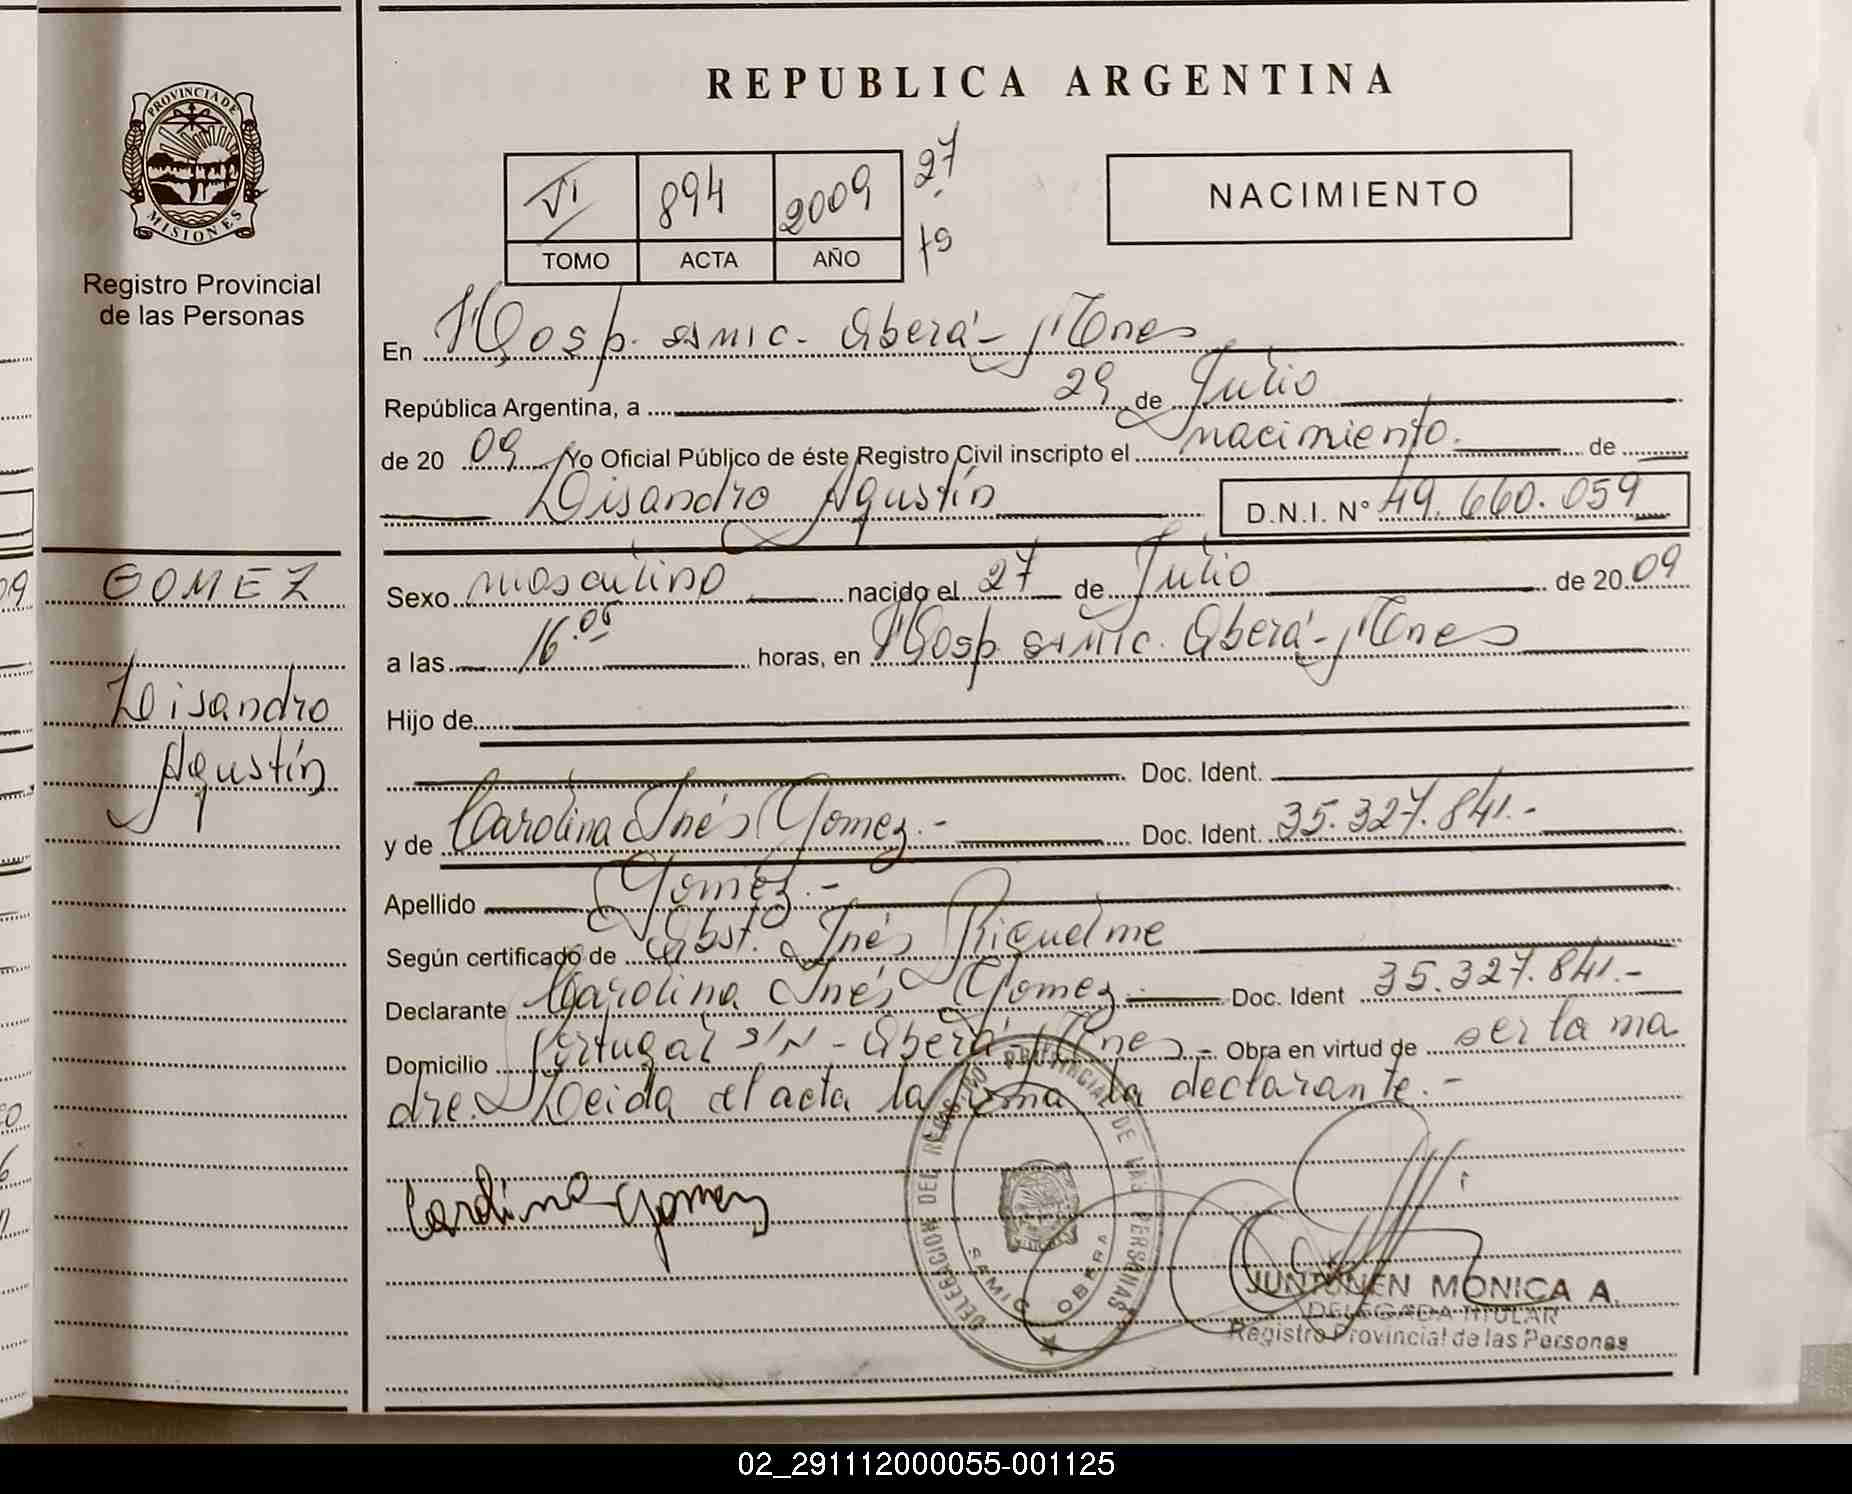 REPUBLICA ARGENTINA
PROVINCIA DE
MISIONES
Registro Provincial
de las Personas
VI 894 2009 27
TOMO ACTA AÑO
NACIMIENTO
En Hosp. SAMIC. Oberá - Mnes
República Argentina, a 29 de Julio
de 20 09 Yo Oficial Público de éste Registro Civil inscripto el nacimiento. de
Lisandro Agustín D.N.I. N° 49.660.059
GOMEZ
Lisandro
Agustín
Sexo masculino nacido el 27 de Julio de 20 09
a las 16.05 horas, en Hosp. SAMIC. Oberá - Mnes
Hijo de
Doc. Ident.
y de Carolina Inés Gomez.- Doc. Ident. 35.327.841.-
Apellido Gomez.-
Según certificado de Obst. Inés Riquelme
Declarante Carolina Inés Gomez Doc. Ident 35.327.841.-
Domicilio Portugal S/N - Oberá - Mnes.- Obra en virtud de ser la ma
dre. Leida el acta la firma la declarante.-
Carolina Gomez
DELEGACION DEL REGISTRO PROVINCIAL DE LAS PERSONAS
SAMIC OBERA
JUNTUNEN MONICA A.
DELEGADA TITULAR
Registro Provincial de las Personas
02_291112000055-001125